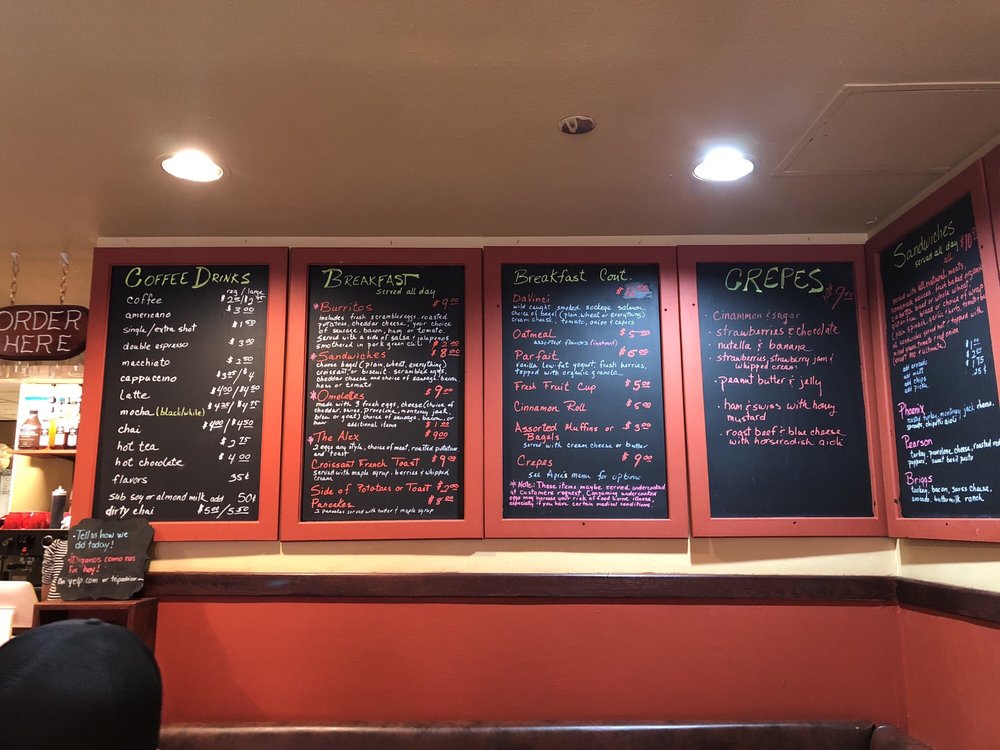 ORDER
HERE
COFFEE DRINKS
reg / large
coffee
americano $3.00
single/extra shot $1.50
double espresso $3.00
macchiato $2.50
cappuccino
Latte $4.00/$4.50
mocha (black/white)
chai $4.00/$4.50
hot tea $2.75
hot chocolate $4.00
flavors 35¢
sub soy or almond milk add 50¢
dirty chai $5.00/5.50
• Tell us how we
did today!
Diganos como nos
fue hoy!
On yelp.com or tripadvisor
BREAKFAST
served all day
*Burritos $9.00
includes fresh scrambled eggs, roasted
potatoes, cheddar cheese, your choice
of sausage, bacon, ham or tomato.
served with a side of salsa & jalapenos
smothered in pork green chili $2.00
*Sandwiches $8.00
choose bagel (plain, wheat, everything)
croissant, or biscuit. scrambled eggs,
cheddar cheese and choice of sausage, bacon,
ham or tomato
*Omelettes $9.00
made with 3 fresh eggs, cheese (choice of
cheddar, swiss, provolone, monterey jack,
bleu or goat) choice of sausage, bacon, or
ham additional items $1.00
*The Alex $9.00
2 eggs any style, choice of meat, roasted potatoes,
and toast
Croissant French Toast $9.00
served with maple syrup, berries & whipped
cream
Side of Potatoes or Toast $2.00
Pancakes
2 pancakes served with butter & maple syrup
Breakfast Cont.
DaVinci
wild caught smoked sockeye salmon,
choice of bagel (plain, wheat or everything)
cream cheese, tomato, onion & capers
Oatmeal $5.00
assorted flavors
Parfait $6.00
vanilla low-fat yogurt, fresh berries,
topped with organic granola
Fresh Fruit Cup $5.00
Cinnamon Roll $5.00
Assorted Muffins or $3.00
Bagels
served with cream cheese or butter
Crepes $9.00
see Apie's menu for options
*Note: These items maybe served undercooked
at customers request. Consuming undercooked
eggs may increase your risk of food borne illness,
especially if you have certain medical conditions.
CREPES $9.00
• cinnamon & sugar
• strawberries & chocolate
• nutella & banana
• strawberries, strawberry jam &
whipped cream
• peanut butter & jelly
• ham & swiss with honey
mustard
• roast beef & blue cheese
with horseradish aioli
Sandwiches
served all day
served with all natural meats,
add avocado
add meat
add chips
add pickle 25¢
Phoenix
turkey, monterey jack cheese,
sprouts, chipotle aioli
Pearson
turkey, provolone cheese, roasted red
peppers, sweet basil pesto
Briggs
turkey, bacon, swiss cheese,
avocado, buttermilk ranch